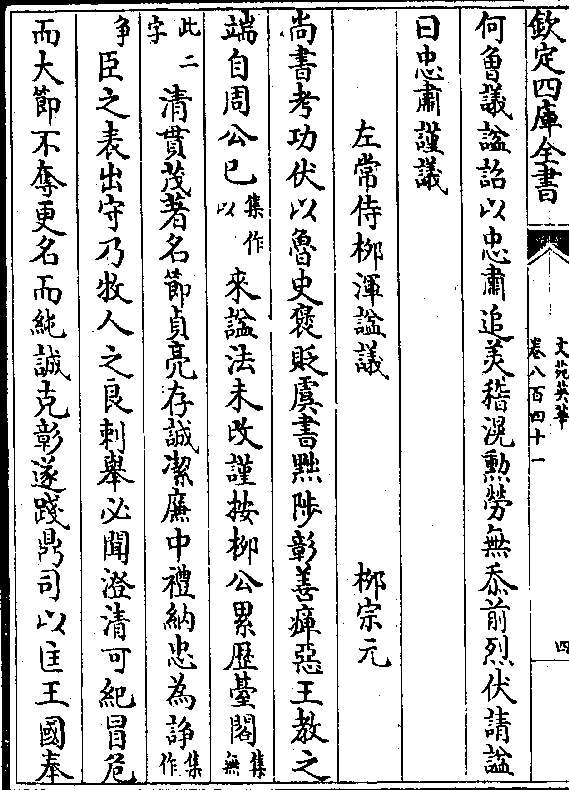 欽定四庫全書
文苑英華
卷八百四十一
四
何魯議諡詔以忠肅追美稽滉勲勞無忝前烈伏請諡
曰忠肅謹議
左常侍栁渾諡議
栁宗元
尚書考功伏以魯史褒貶虞書黜陟彰善癉惡王教之
端自周公已集作以來諡法未改謹按栁公累歴臺閣集無
此二字清貫茂著名節貞亮存誠潔廉中禮納忠為諍集作
争臣之表出守乃牧人之良刺舉必聞澄清可紀冒危
而大節不奪更名而純誠克彰遂踐鼎司以匡王國奉